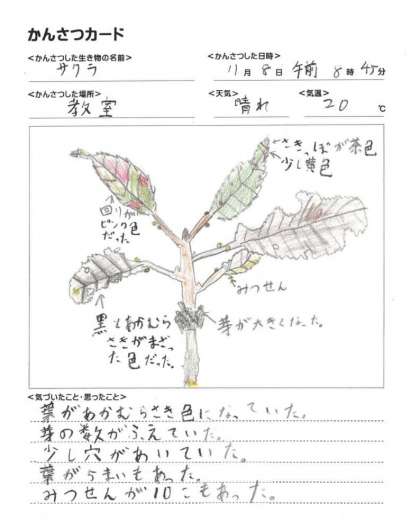 かんさつカード
<かんさつした生き物の名前>
サクラ
<かんさつした日時>
11月8日 午前 8時45分
<かんさつした場所>
教室
<天気>
晴れ
<気温>
20℃
さきっぽが茶色
少し黄色
回りが
ピンク色
だった
みつせん
黒とあかむら
さきがまざっ
た色だった。
芽が大きくなった。
<気づいたこと・思ったこと>
葉があかむらさき色になっていた。
芽の数がふえていた。
少し穴があいていた。
葉がうまいもあった。
みつせんが10こもあった。